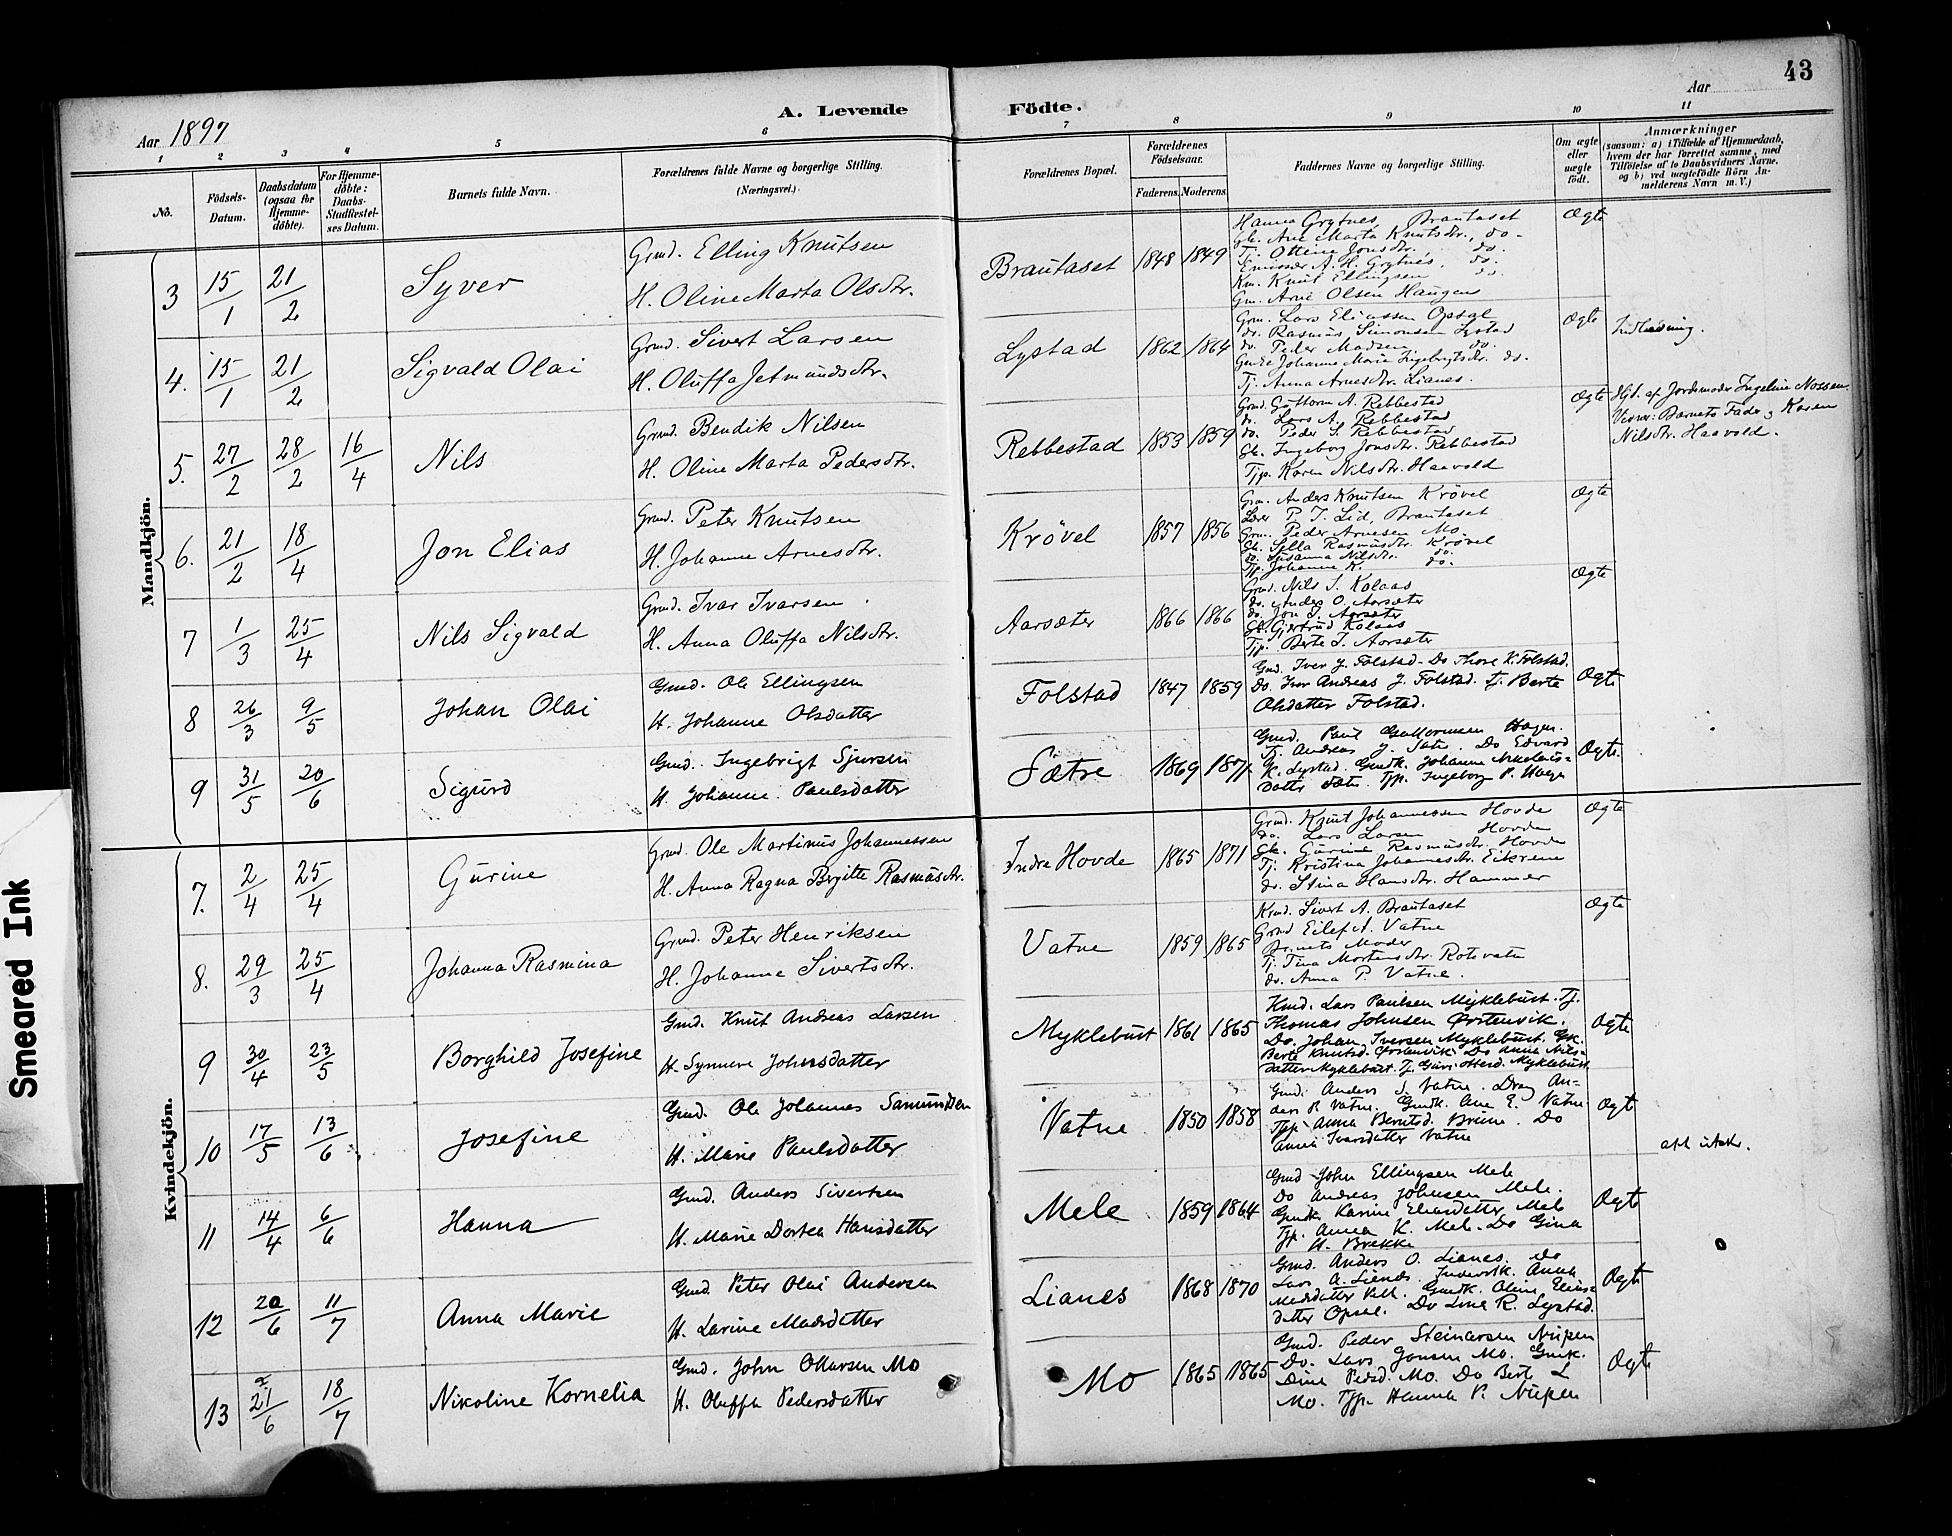 43
A. Levende Födte.
Aar 1897
Aar
1 2 3 4 5 6 7 8 9 10 11
No.
Födsels-Datum.
Daabsdatum (ogsaa for Hjemme-döbte).
For Hjemme-döbte: Daabs-Stadfæstel-ses Datum.
Barnets fulde Navn.
Forældrenes fulde Navne og borgerlige Stilling. (Næringsvei.)
Forældrenes Bopæl.
Forældrenes Födselsaar.
Faderens. Moderens.
Faddernes Navne og borgerlige Stilling.
Om ægte eller uægte födt.
Anmærkninger (saasom: a) i Tilfælde af Hjemmedaab, hvem der har forrettet samme, med Tilföielse af to Daabsvidners Navne, og b) ved uægtefödte Börn An-melderens Navn m. V.)
Mandkjön.
3 15/1 21/2 Syver
Grmd. Elling Knutsen
H. Oline Marta Olsdtr.
Brautaset 1848 1849
Hanna Grytnes, Brautaset
Gk. Ane Marta Knutsdtr., do.
Tj. Ottine Jonsdtr. do.
Emissær A. H. Grytnes, do.
Km. Knut Ellingsen do.
Gm. Arne Olsen Haugen
Ægte
4. 15/1 21/2 Sigvald Olai
Grmd. Sivert Larsen
H. Oluffa Jetmundsdtr.
Lystad 1862 1864
Grm. Lars Eliassen Opsal
do. Rasmus Simonsen Lystad
do. Peder Madsen do.
Johanne Marie Ingebrigtsdtr. do.
Tj. Anna Arnesdtr. Lianes.
Ægte
Indledning.
5. 27/2 28/2 16/4 Nils
Grmd. Bendik Nilsen
H. Oline Marta Pedersdtr.
Rebbestad 1853 1859
Grmd. Guttorm A. Rebbestad
do. Lars A. Rebbestad
do. Peder S. Rebbestad
Gk. Ingeborg Jonsdtr. Rebbestad
Tjp. Karen Nilsdtr. Haavold
Ægte
Hjd. af Jordemoder Ingeline Nossen.
Vidner: Barnets Fader og Karen
Nilsdtr. Haavold.
6. 21/2 18/4 Jon Elias
Grmd. Peter Knutsen
H. Johanne Arnesdtr.
Krövel 1857 1856
Grm. Anders Knutsen Krövel
Lærer P. J. Lid, Brautaset
Grm. Peder Arnesen Mo
Gk. Sella Rasmusdtr. Krövel
do. Susanna Nilsdtr. do.
Tjp. Johanne K. do.
Ægte
7 1/3 25/4 Nils Sigvald
Grmd. Ivar Ivarsen
H. Anna Oluffa Nilsdtr.
Aarsæter 1866 1866
Grmd. Nils S. Kolaas
do. Anders O. Aarsæter
do. Jon J. Aarsæter
Gk. Gjertrud Kolaas
Tjp. Berte I. Aarsæter
Ægte
8 26/3 9/5 Johan Olai
Gmd. Ole Ellingsen
H. Johanne Olsdatter
Folstad 1847 1859
Gmd. Iver J. Folstad. Do Thore K. Folstad.
Do. Iver Andreas J. Folstad. Tj. Berte
Olsdatter Folstad.
Ægte
9 31/5 20/6 Sigurd
Gmd. Ingebrigt Sjursen
H. Johanne Paulsdatter
Sætre 1869 1871
Gmd. Paul Guttormsen Hagen.
Tj. Andreas J. Sætr. Do Edvard
K. Lystad. Gmdk. Johanne Nikolais-
datter Sætr. Tjp. Ingeborg P. Hagen
Ægte
Kvindekjön.
7. 2/4 25/4 Gurine
Grmd. Ole Martinus Johannessen
H. Anna Ragna Birgitte Rasmusdtr.
Indre Hovde 1865 1871
Grmd. Knut Johannessen Hovde
do. Lars Larsen Hovde
Gk. Gurine Rasmusdtr. Hovde
Tj. Kristina Johannesdtr. Eikrene
do. Stina Hansdtr. Hammer
Ægte
8. 29/3 25/4 Johanna Rasmina
Grmd. Peter Henriksen
H. Johanne Sivertsdtr.
Vatne 1859 1865
Sivert A. Brautaset
Grmd Eilef A. Vatne
Barnets Moder
Tj. Tina Mortensdtr. Rotevatn
do. Anna P. Vatne.
Ægte
9 30/4 23/5 Borghild Josefine
Gmd. Knut Andreas Larsen
H. Synneve Johnsdatter
Myklebust 1861 1865
Kmd. Lars Paulsen Myklebust. Tj.
Thomas Johnsen Ørstenvik.
Do. Johan Iversen Myklebust. Gk.
Berte Knutsd. Ørstenvik. Do Anna Nils-
datter Myklebust. Tj. Guri Ottesd. Myklebust
Ægte
10 17/5 13/6 Josefine
Gmd. Ole Johannes Samundsen
H. Marie Paulsdatter
Vatne 1850 1858
Gmd. Anders S. Vatne. Dreng An-
ders P. Vatne. Gmdk. Ane E. Vatne
Tjp. Anna Berntsd. Brune. Do
Anna Ivarsdatter Vatne
Ægte
11 14/4 6/6 Hanna
Gmd. Anders Sivertsen
H. Marie Dortea Hansdatter
Mele 1859 1864
Gmd John Ellingsen Mele
Do Andreas Johnsen Mele.
Gmdk Karine Eliasdatter Mele
Tjp. Anna K. Mele. Do Gina
H. Brekke
Ægte
12 20/6 11/7 Anna Marie
Gmd Peter Olai Andersen
H. Larine Madsdatter
Lianes 1868 1870
Gmd. Anders O. Lianes, do
Lars A. Lianes. Anna
Madsdatter Gmdk. Oline Elias-
datter Opsal. Do Lina R. Lystad.
Ægte
13 21/6 18/7 Nikoline Kornelia
Gmd. John Ottarsen Mo
H. Oluffa Pedersdatter
Mo 1865 1865
Gmd. Peder Steinarsen Nupen
Do. Lars Jonsen Mo. Gmk.
Dina Pedsd. Mo. Do Berte L
Mo. Tjp. Hanna P. Nupen
Ægte
Smeared Ink